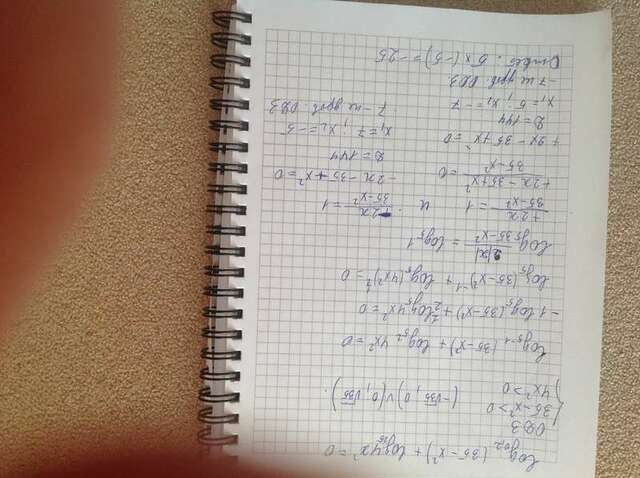 log₀,₂ (35-x²) + log₂₅ 4x² = 0
ОДЗ
{ 35-x²>0
4x²>0 (-√35, 0) ∪ (0, √35).
log₅₋₁ (35-x²) + log₅₂ 4x² = 0
-1·log₅ (35-x²) + ½ log₅ 4x² = 0
log₅ (35-x²)⁻¹ + log₅ (4x²)^½ = 0
log₅ 2|x|/35-x² = log₅ 1
+2x/35-x² = 1 и -2x/35-x² = 1
+2x-35+x²/35-x² = 0 -2x-35+x² = 0
D=144
+2x-35+x² = 0 x₁=7; x₂=-5
D=144 7-не удов. ОДЗ
x₁=5; x₂=-7
-7 не удов. ОДЗ.
Ответ. 5×(-5)=-25